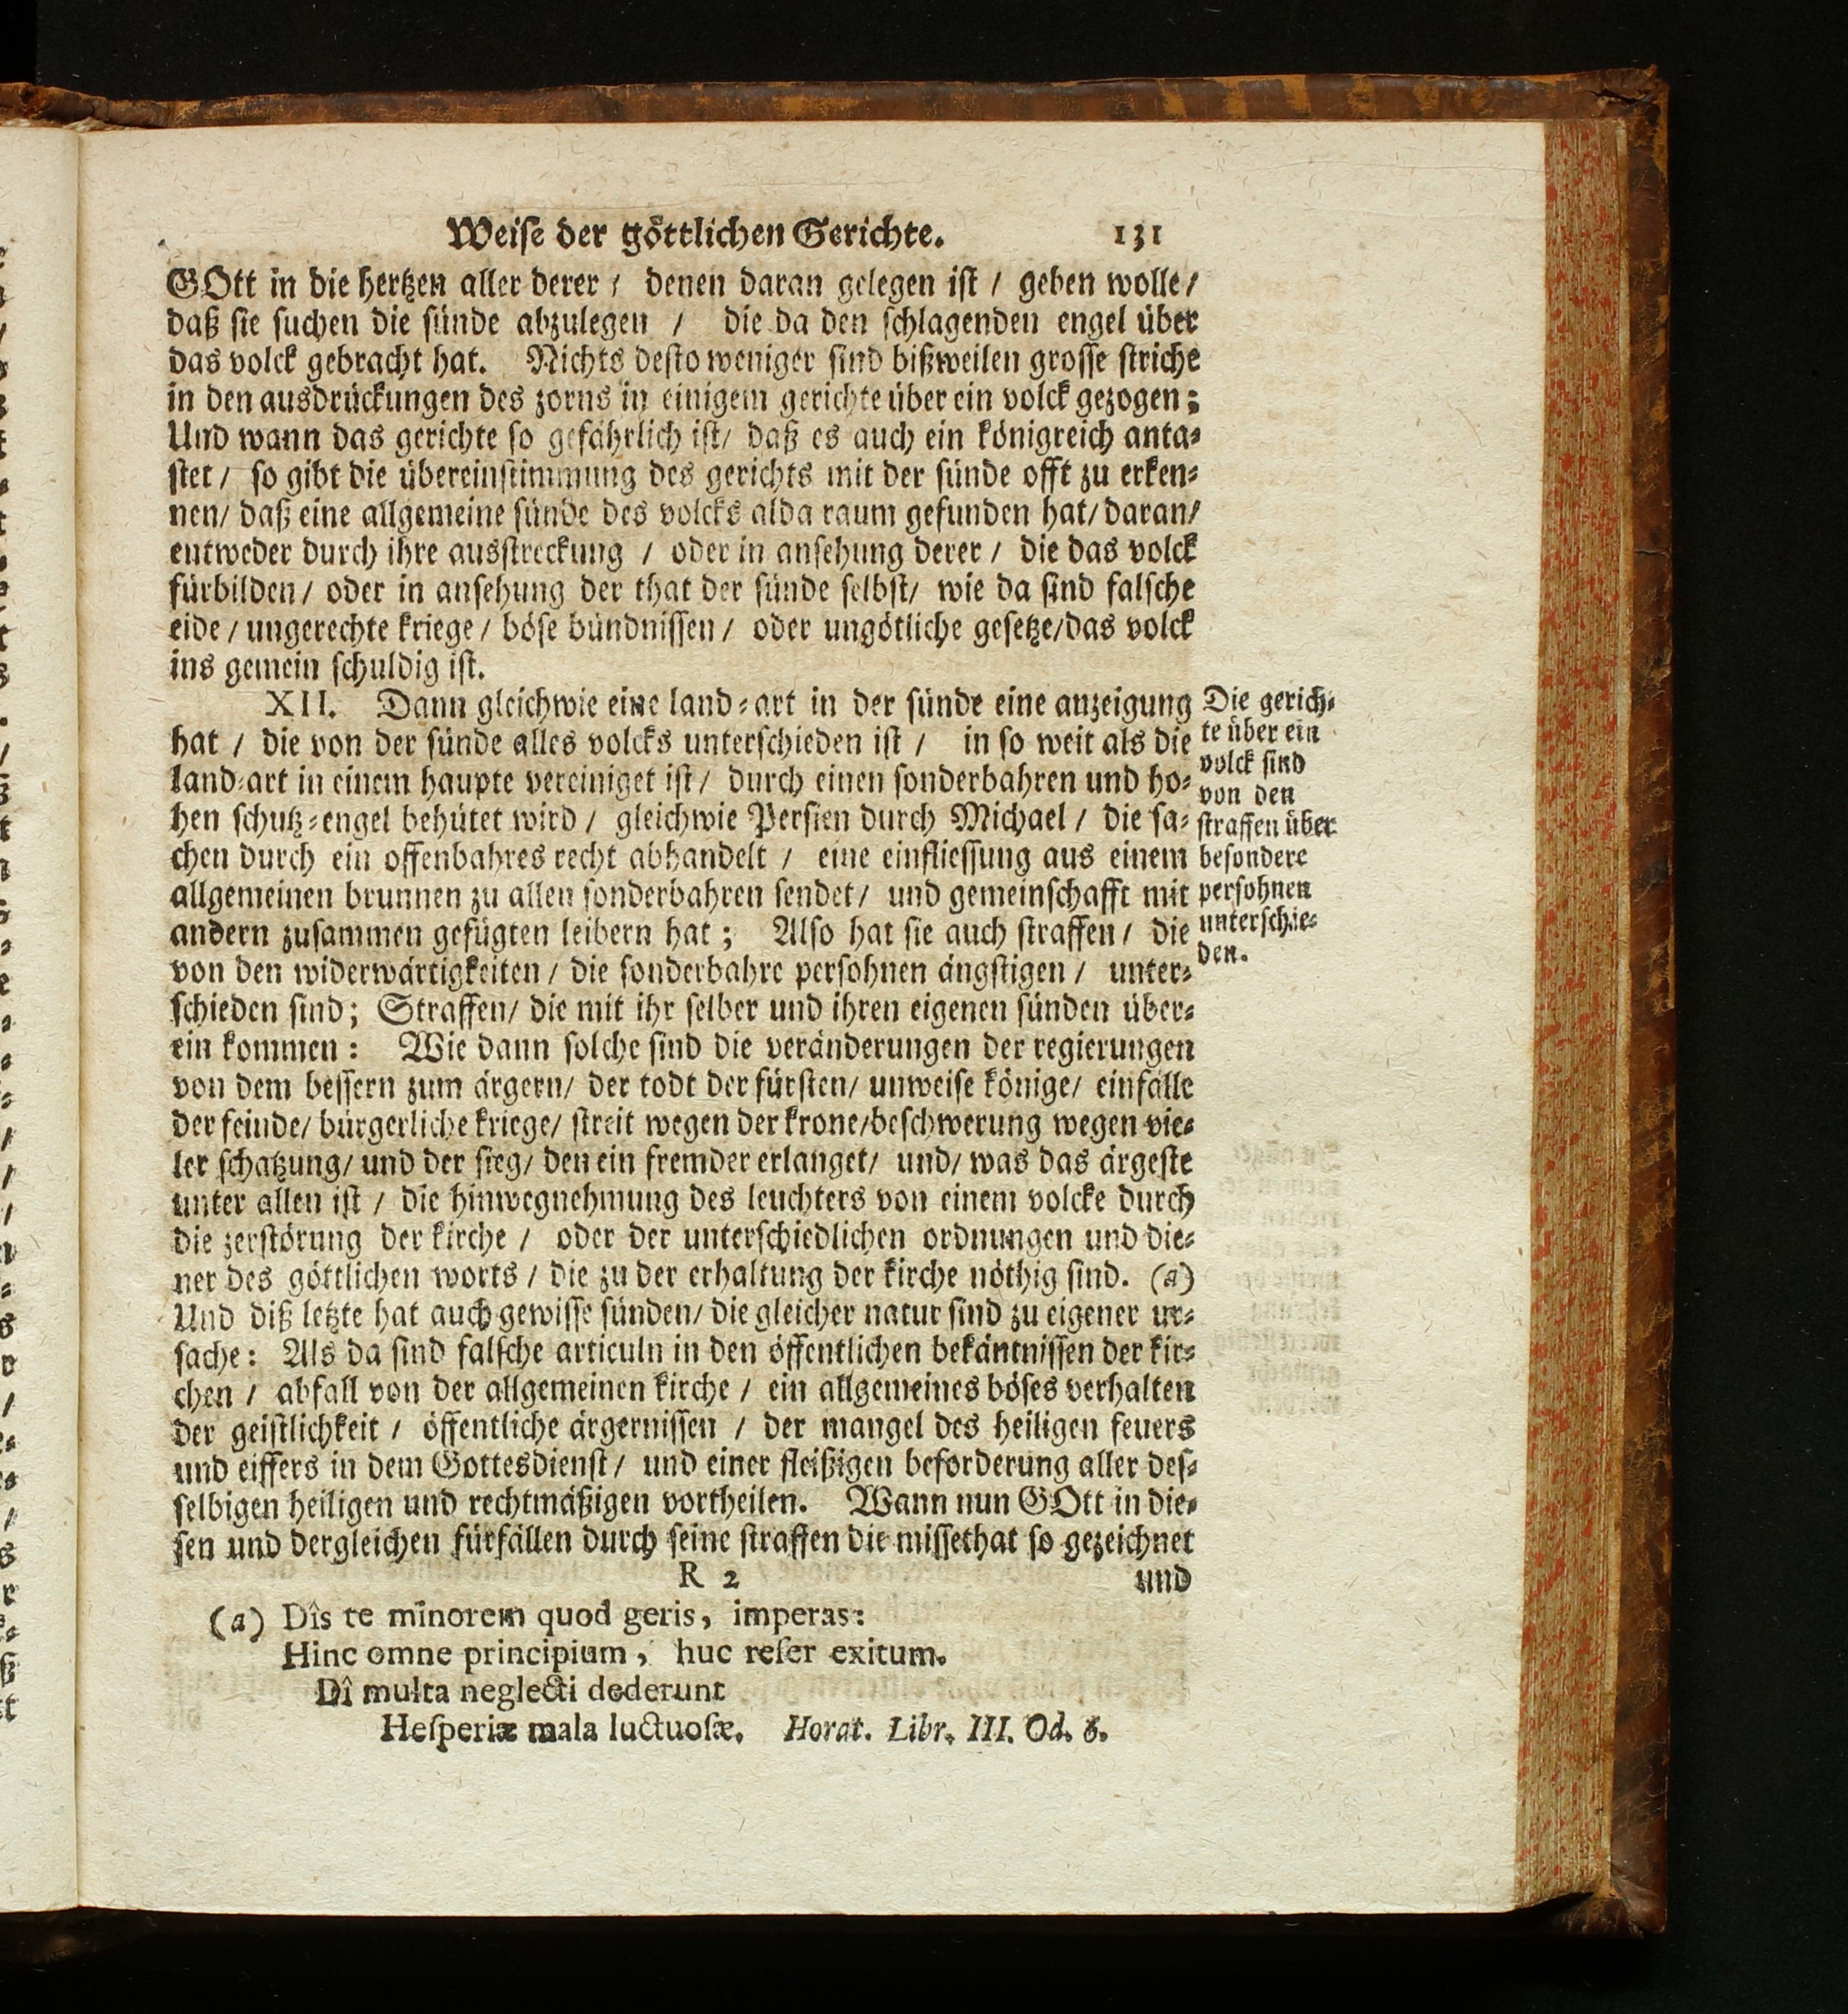 Weise der göttlichen Gerichte. 131
GOtt in die hertzen aller derer / denen daran gelegen ist / geben wolle /
daß sie suchen die sünde abzulegen / die da den schlagenden engel über
das volck gebracht hat. Nichts desto weniger sind bißweilen grosse striche
in den ausdrückungen des zorns in einigem gerichte über ein volck gezogen;
Und wann das gerichte so gefährlich ist / daß es auch ein königreich anta-
stet / so gibt die übereinstimmung des gerichts mit der sünde offt zu erken-
nen / daß eine allgemeine sünde des volcks alda raum gefunden hat / daran /
entweder durch ihre ausstreckung / oder in ansehung derer / die das volck
fürbilden / oder in ansehung der that der sünde selbst / wie da sind falsche
eide / ungerechte kriege / böse bündnissen / oder ungötliche gesetze / das volck
ins gemein schuldig ist.
XII. Dann gleichwie eine land-art in der sünde eine anzeigung
hat / die von der sünde alles volcks unterschieden ist / in so weit als die
land-art in einem haupte vereiniget ist / durch einen sonderbahren und ho-
hen schutz-engel behütet wird / gleichwie Persien durch Michael / die sa-
chen durch ein offenbahres recht abhandelt / eine einfliessung aus einem
allgemeinen brunnen zu allen sonderbahren sendet / und gemeinschafft mit
andern zusammen gefügten leibern hat; Also hat sie auch straffen / die
von den widerwärtigkeiten / die sonderbahre persohnen ängstigen / unter-
schieden sind; Straffen / die mit ihr selber und ihren eigenen sünden über-
ein kommen: Wie dann solche sind die veränderungen der regierungen
von dem bessern zum ärgern / der todt der fürsten / unweise könige / einfälle
der feinde / bürgerliche kriege / streit wegen der krone / beschwerung wegen vie-
ler schatzung / und der sieg / den ein fremder erlanget / und / was das ärgeste
unter allen ist / die hinwegnehmung des leuchters von einem volcke durch
die zerstörung der kirche / oder der unterschiedlichen ordnungen und die-
ner des göttlichen worts / die zu der erhaltung der kirche nöthig sind. (a)
Und diß letzte hat auch gewisse sünden / die gleicher natur sind zu eigener ur-
sache: Als da sind falsche articuln in den öffentlichen bekäntnissen der kir-
chen / abfall von der allgemeinen kirche / ein allgemeines böses verhalten
der geistlichkeit / öffentliche ärgernissen / der mangel des heiligen feuers
und eiffers in dem Gottesdienst / und einer fleißigen beforderung aller des-
selbigen heiligen und rechtmäßigen vortheilen. Wann nun GOtt in die-
sen und dergleichen fürfällen durch seine straffen die missethat so gezeichnet
R 2 und
Die gerich-
te über ein
volck sind
von den
straffen über
besondere
persohnen
unterschie-
den.
(a) Dîs te minorem quod geris, imperas:
Hinc omne principium, huc refer exitum.
Dî multa neglecti dederunt
Hesperiæ mala luctuosæ. Horat. Libr. III. Od. 6.